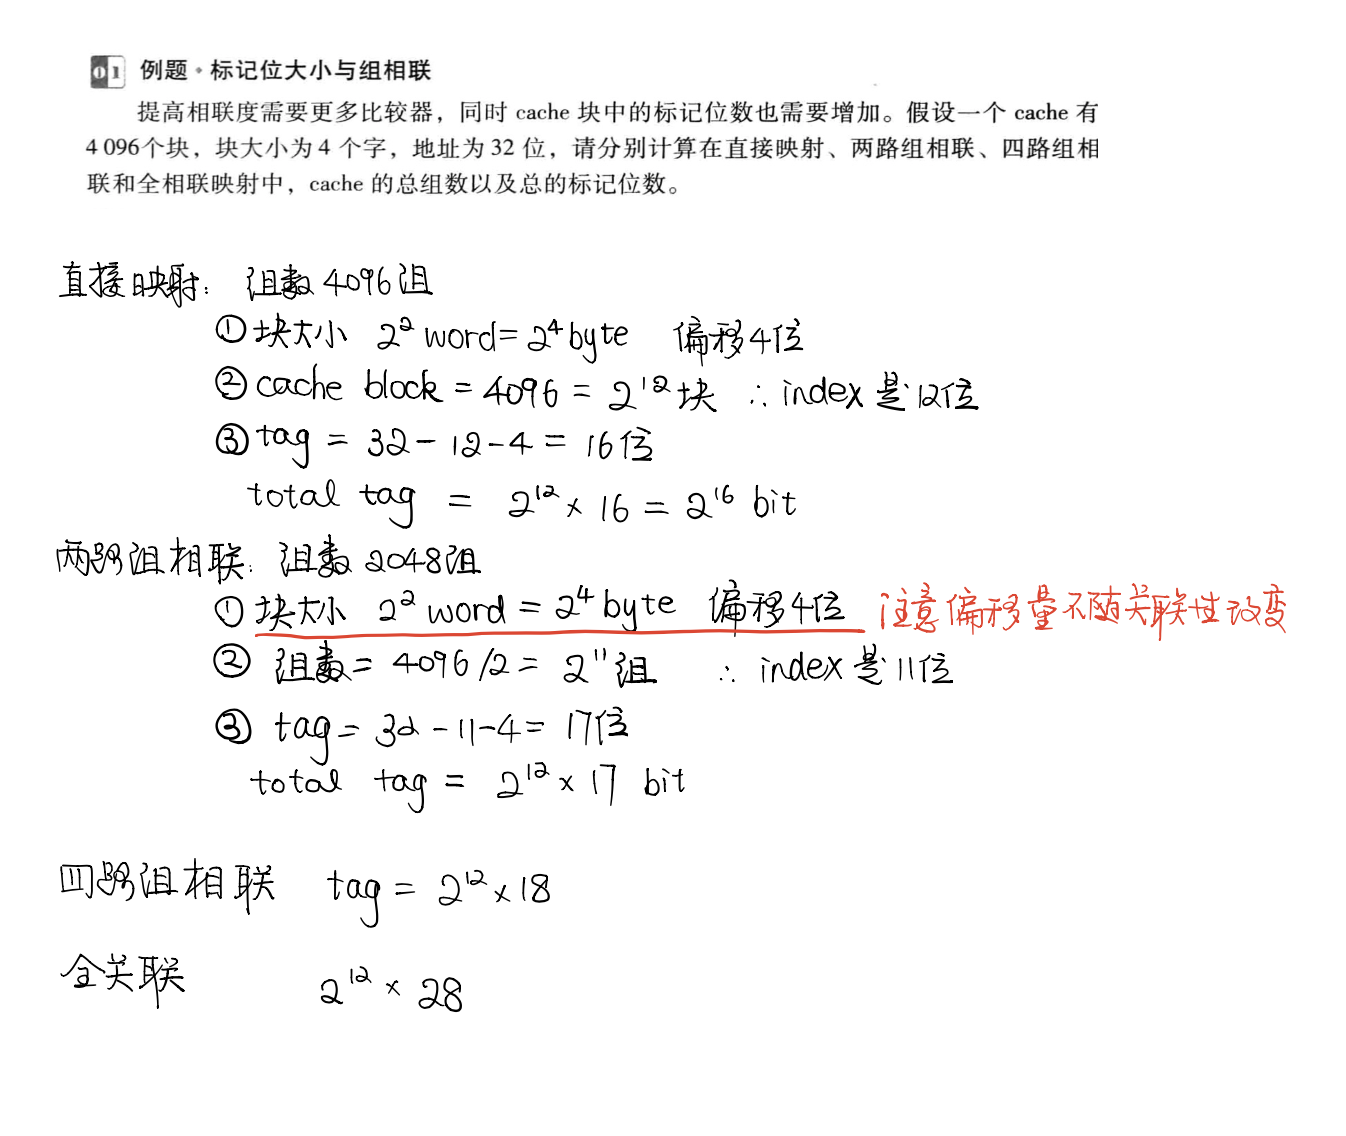 01 例题·标记位大小与组相联
提高相联度需要更多比较器，同时 cache 块中的标记位数也需要增加。假设一个 cache 有
4 096个块，块大小为 4 个字，地址为 32 位，请分别计算在直接映射、两路组相联、四路组相
联和全相联映射中，cache 的总组数以及总的标记位数。
直接映射: 组数 4096组
①块大小 2² word = 2⁴ byte 偏移4位
② cache block = 4096 = 2¹²块 ∴ index 是12位
③ tag = 32 - 12 - 4 = 16位
total tag = 2¹² × 16 = 2¹⁶ bit
两路组相联: 组数 2048组
① 块大小 2² word = 2⁴ byte 偏移4位 注意偏移量不随关联性改变
② 组数 = 4096/2 = 2¹¹组 ∴ index 是11位
③ tag = 32 - 11 - 4 = 17位
total tag = 2¹² × 17 bit
四路组相联 tag = 2¹² × 18
全关联 2¹² × 28